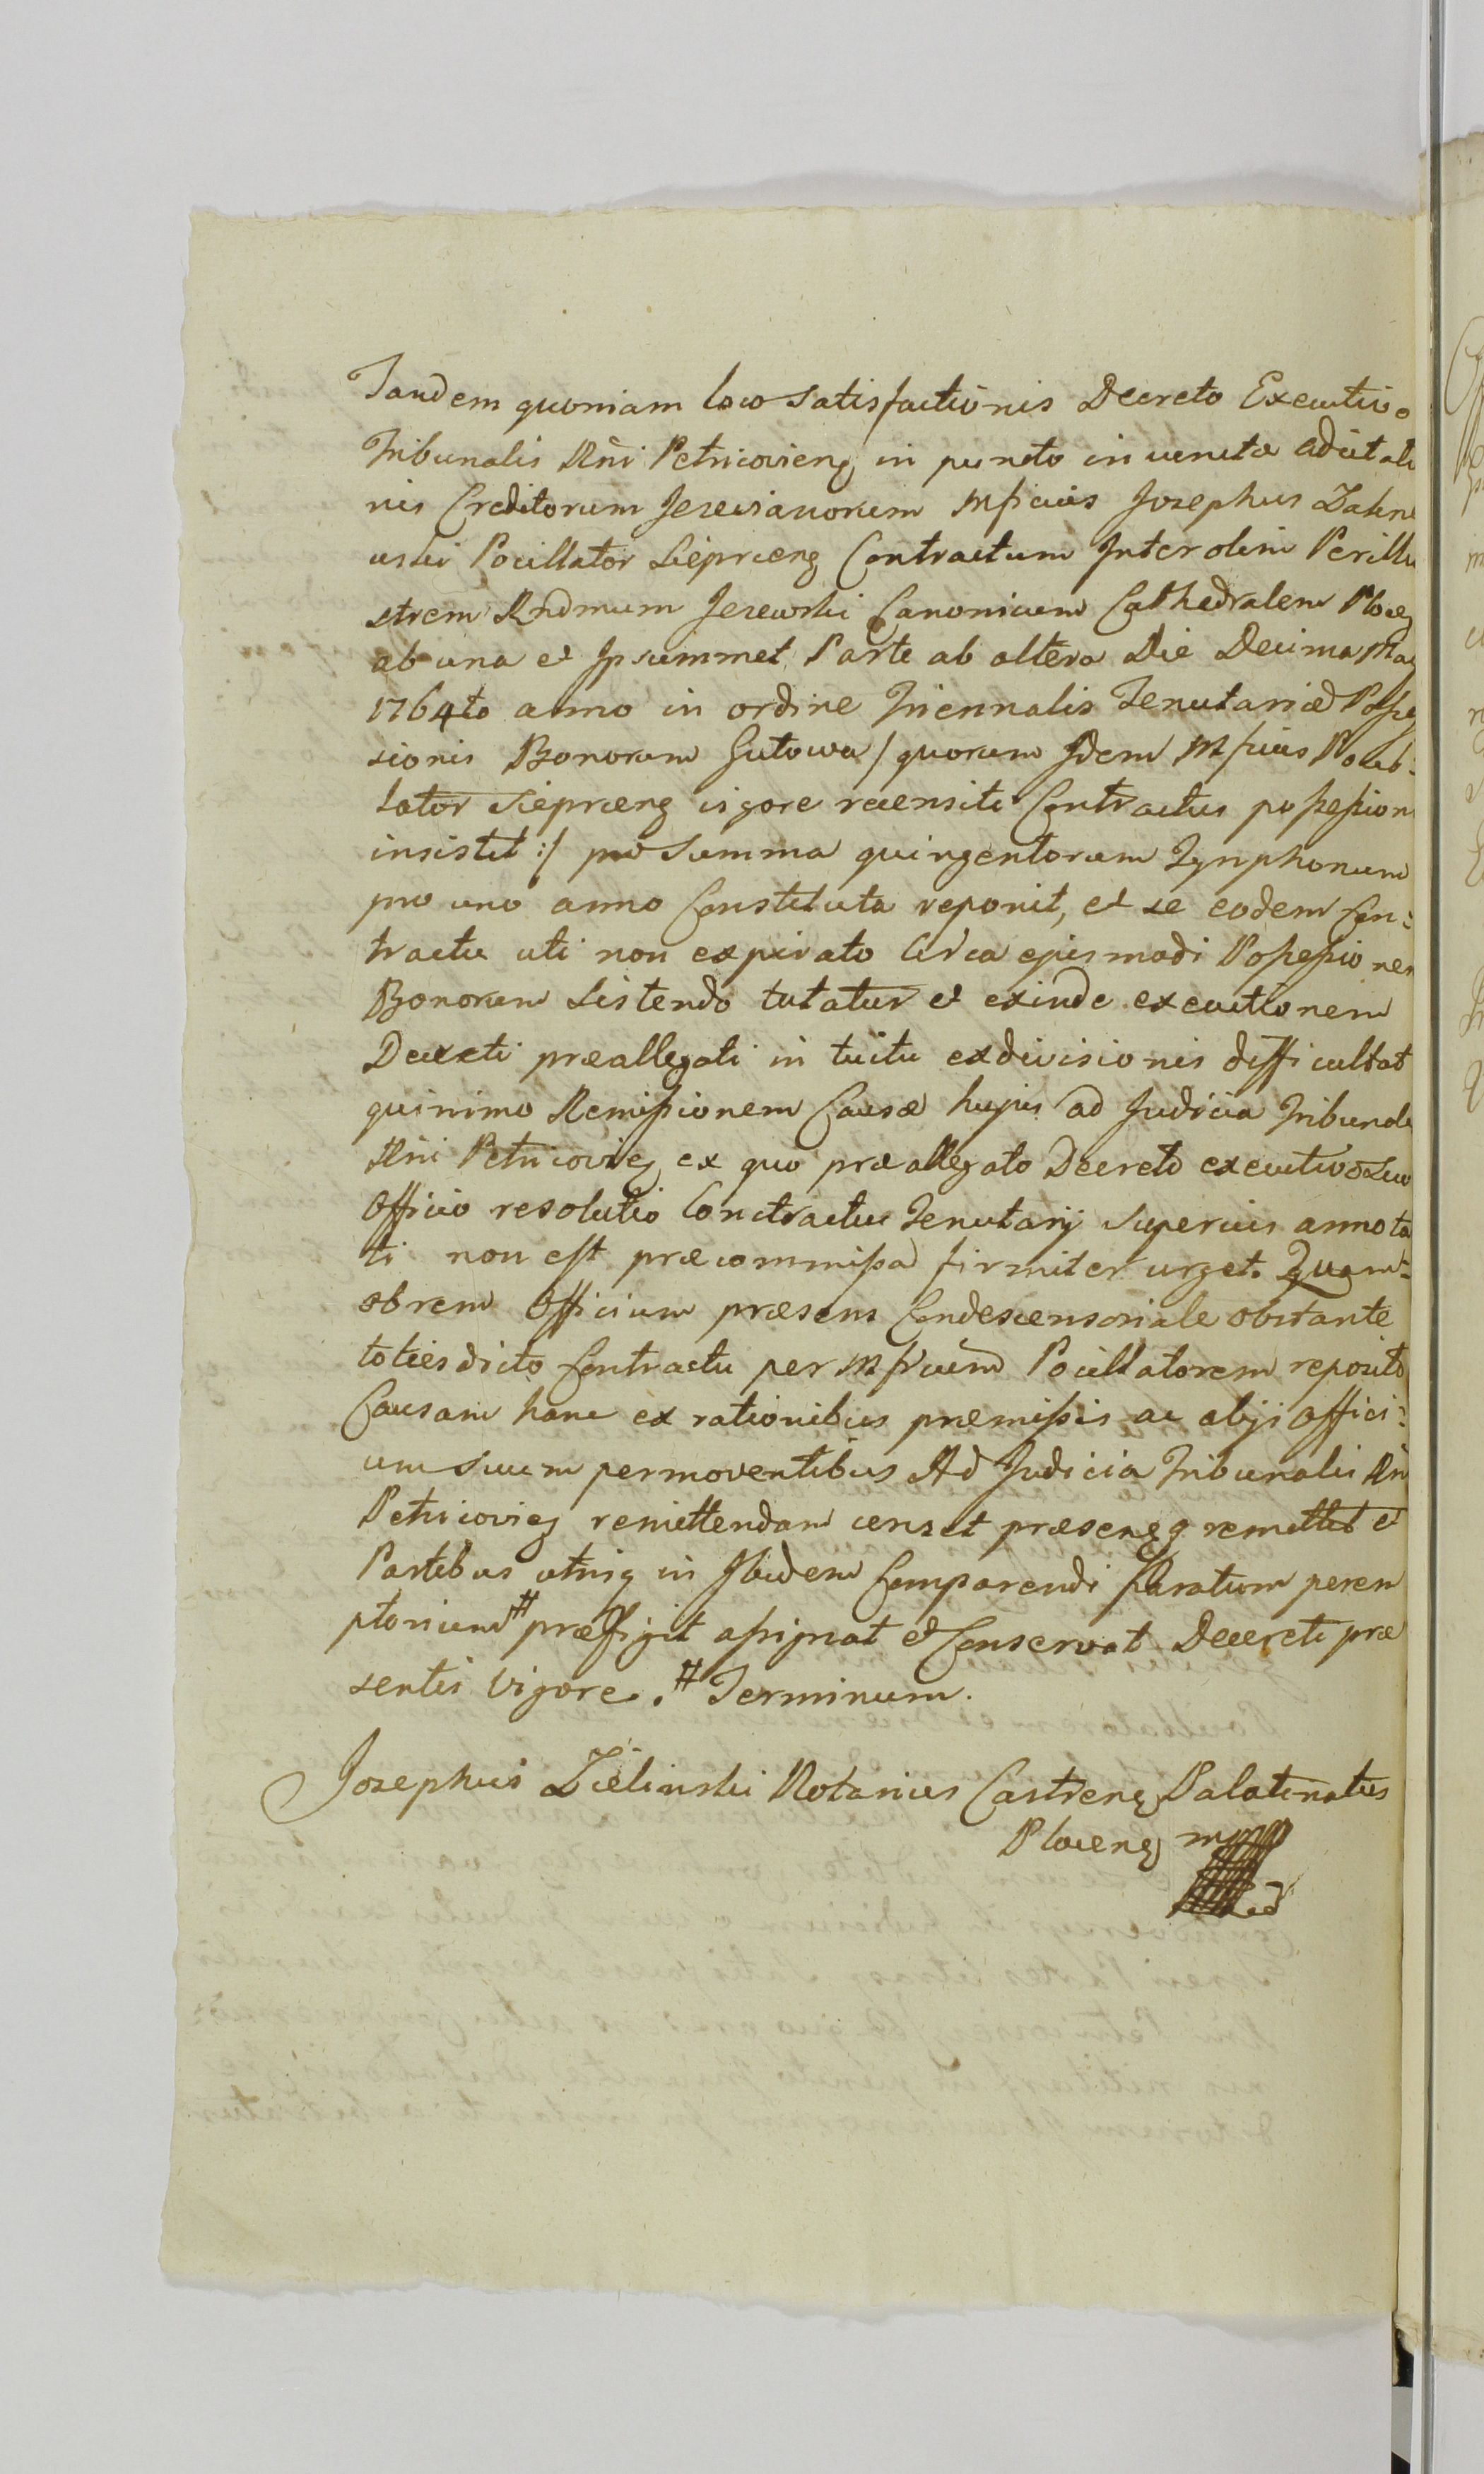 Tandem quoniam loco satisfactionis Decreto Executivo
Tribunalis Rni Petricovieng in puncto inventæ adcitati
nis Creditorum Jezewianorum Mficus Josephus Zakrz
wski Pocillator Siepræng Contractum Inter olim Perillu
strem Rndmum Jezewski Canonicum Cathedralem Ploceg
ab una et Ipsummet Parte ab altera Die Decima May
1764to anno in ordine Triennalis Tenutariæ Posses
sionis Bonorum Gutowa / quorum Idem Mficus Pocil-
lator Siepræng vigore recensiti Contractus possession
insistit :/ pro Summa quingentorum Tynphonum
pro uno anno Constituta reponit, et se eodem Con:
tractu uti non expirato Circa ejusmodi Possessionem
Bonorum Sistendo tutatur et exinde executionem
Decreti præallegati intuitu exdivisionis difficultat
quinimo Remissionem Causæ hujus ad Judicia Tribunali
Rni Petricovieg ex quo præallegato Decreto executivo suo
Officio resolutio Contractus Tenutarij superius annota
ti non est præcommissa firmiter urget. Quam-
obrem Officium præsens Condescensoriale obstante
totiesdicto Contractu per Mficum Pocillatorem reposito
Causam hanc ex rationibus præmissis ac alijs Offici:
um suum permoventibus Ad Judicia Tribunalis Rni
Petricovieg remittendam censet præsensq remittit et
Partibus utrisq in Ibidem Comparendi peren
ptorium # præfigit assignat et Conservat Decreti præ
sentis Vigore. # Terminum.
Josephus Zielinski Notarius Castreng Palatinatus
Ploceng mpp